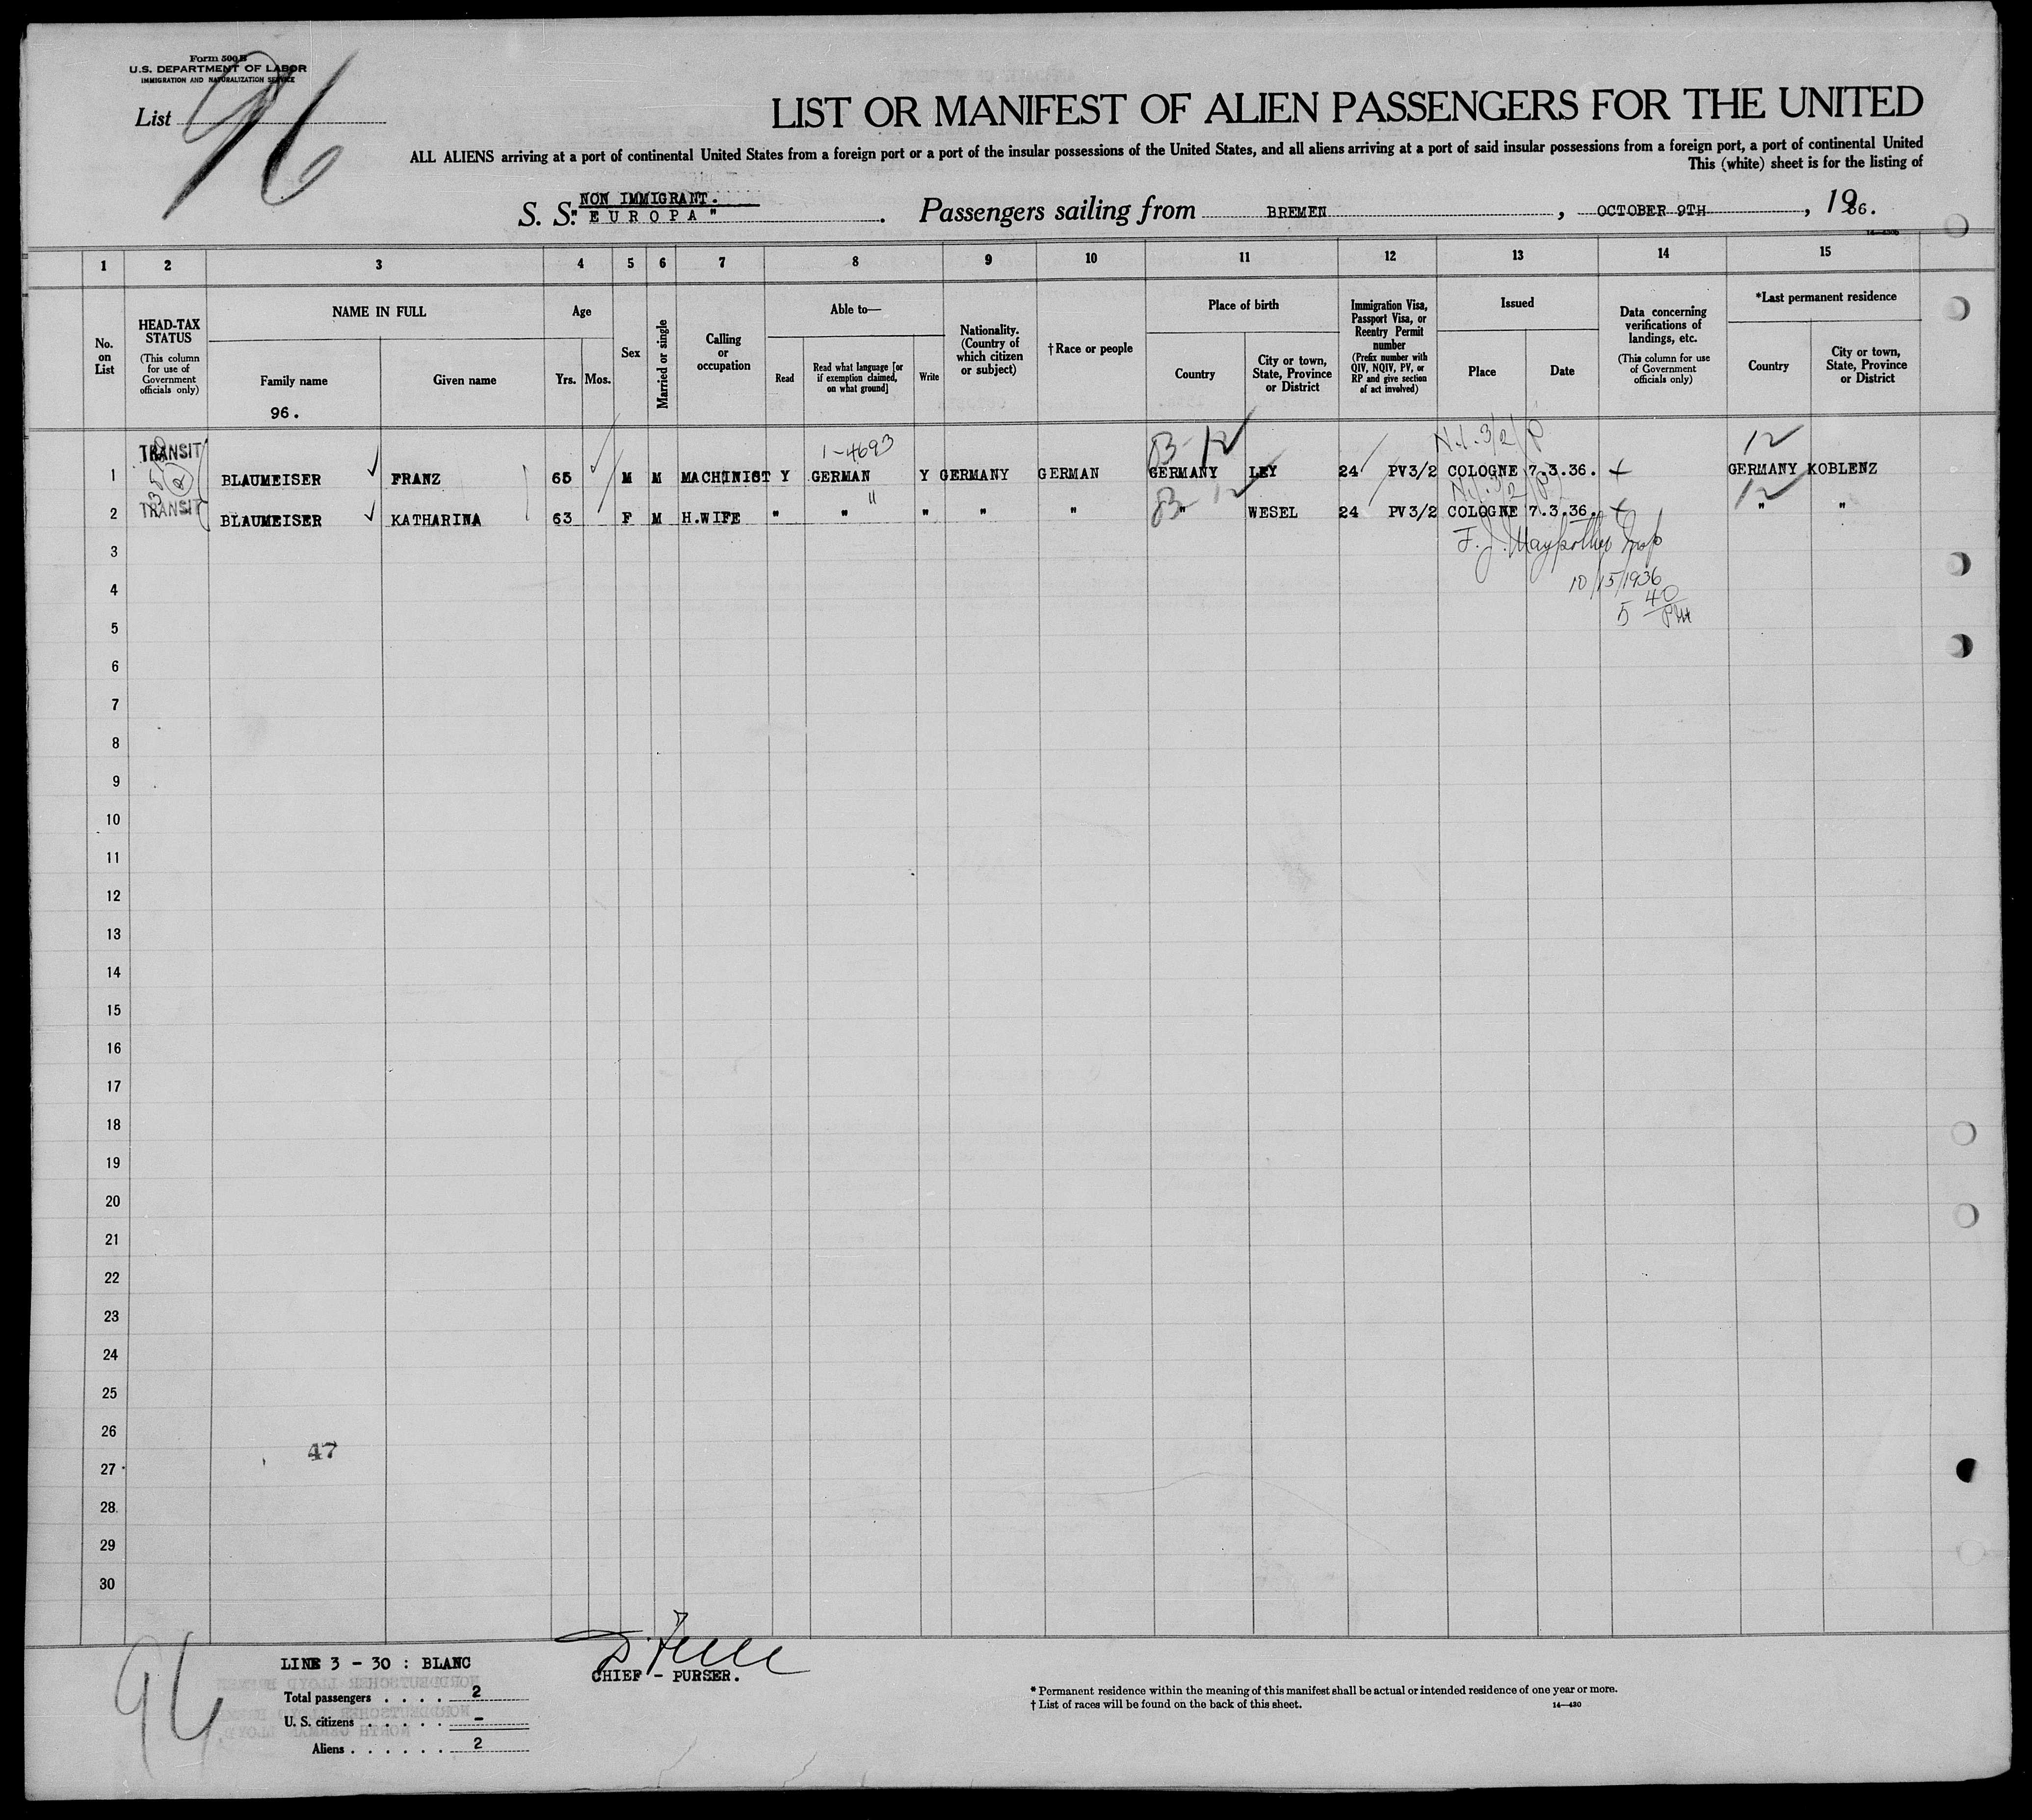 Form 500 B
U.S. DEPARTMENT OF LABOR
IMMIGRATION AND NATURALIZATION SERVICE
List 96
LIST OR MANIFEST OF ALIEN PASSENGERS FOR THE UNITED
ALL ALIENS arriving at a port of continental United States from a foreign port or a port of the insular possessions of the United States, and all aliens arriving at a port of said insular possessions from a foreign port, a port of continental United
This (white) sheet is for the listing of
NON IMMIGRANT.
S. S. "EUROPA". Passengers sailing from BREMEN, OCTOBER 9TH, 1936.
14—430b
1 2 3 4 5 6 7 8 9 10 11 12 13 14 15
No. on List
HEAD-TAX STATUS (This column for use of Government officials only)
NAME IN FULL
Family name
Given name
96.
Age
Yrs. Mos.
Sex
Married or single
Calling or occupation
Able to—
Read
Read what language [or if exemption claimed, on what ground]
Write
Nationality. (Country of which citizen or subject)
†Race or people
Place of birth
Country
City or town, State, Province or District
Immigration Visa, Passport Visa, or Reentry Permit number (Prefix number with QIV, NQIV, PV, or RP and give section of act involved)
Issued
Place
Date
Data concerning verifications of landings, etc. (This column for use of Government officials only)
*Last permanent residence
Country
City or town, State, Province or District
1-4693
N.I. 3/2/P
12
1 TRANSIT BLAUMEISER FRANZ 65 M M MACHINIST Y GERMAN Y GERMANY GERMAN GERMANY LEY 24 PV3/2 COLOGNE 7.3.36. GERMANY KOBLENZ
2 TRANSIT BLAUMEISER KATHARINA 63 F M H.WIFE " " " " " " WESEL 24 PV3/2 COLOGNE 7.3.36. " "
3
10/15/1936
4
5 40 PM
5
6
7
8
9
10
11
12
13
14
15
16
17
18
19
20
21
22
23
24
25
26
47
27
28
29
30
96
LINE 3 - 30 : BLANC
CHIEF - PURSER.
Total passengers . . . . 2
U. S. citizens . . . . . -
Aliens . . . . . . 2
* Permanent residence within the meaning of this manifest shall be actual or intended residence of one year or more.
† List of races will be found on the back of this sheet.
14—430